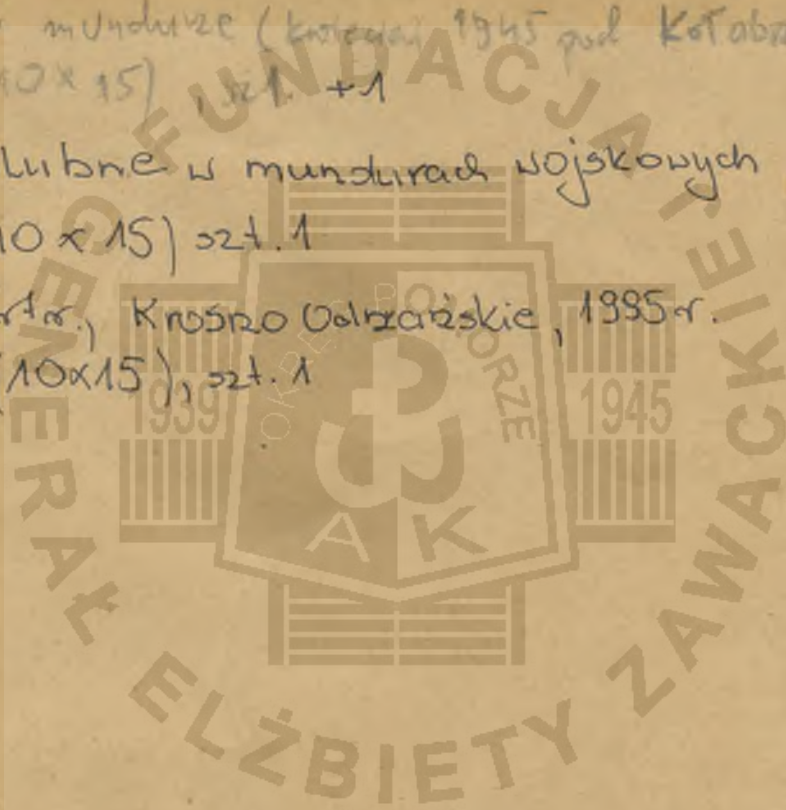 mundurze (kwiecień 1945 pod Kołobrz
10 x 15) , szt. +1
lubne w mundurach wojskowych
10 x 15) szt. 1
rtr., Krosno Odrzańskie, 1995 r.
(10x15), szt. 1
FUNDACJA
GENERAŁ ELŻBIETY ZAWACKIEJ
OKRĘG POMORZE
1939 1945
AK